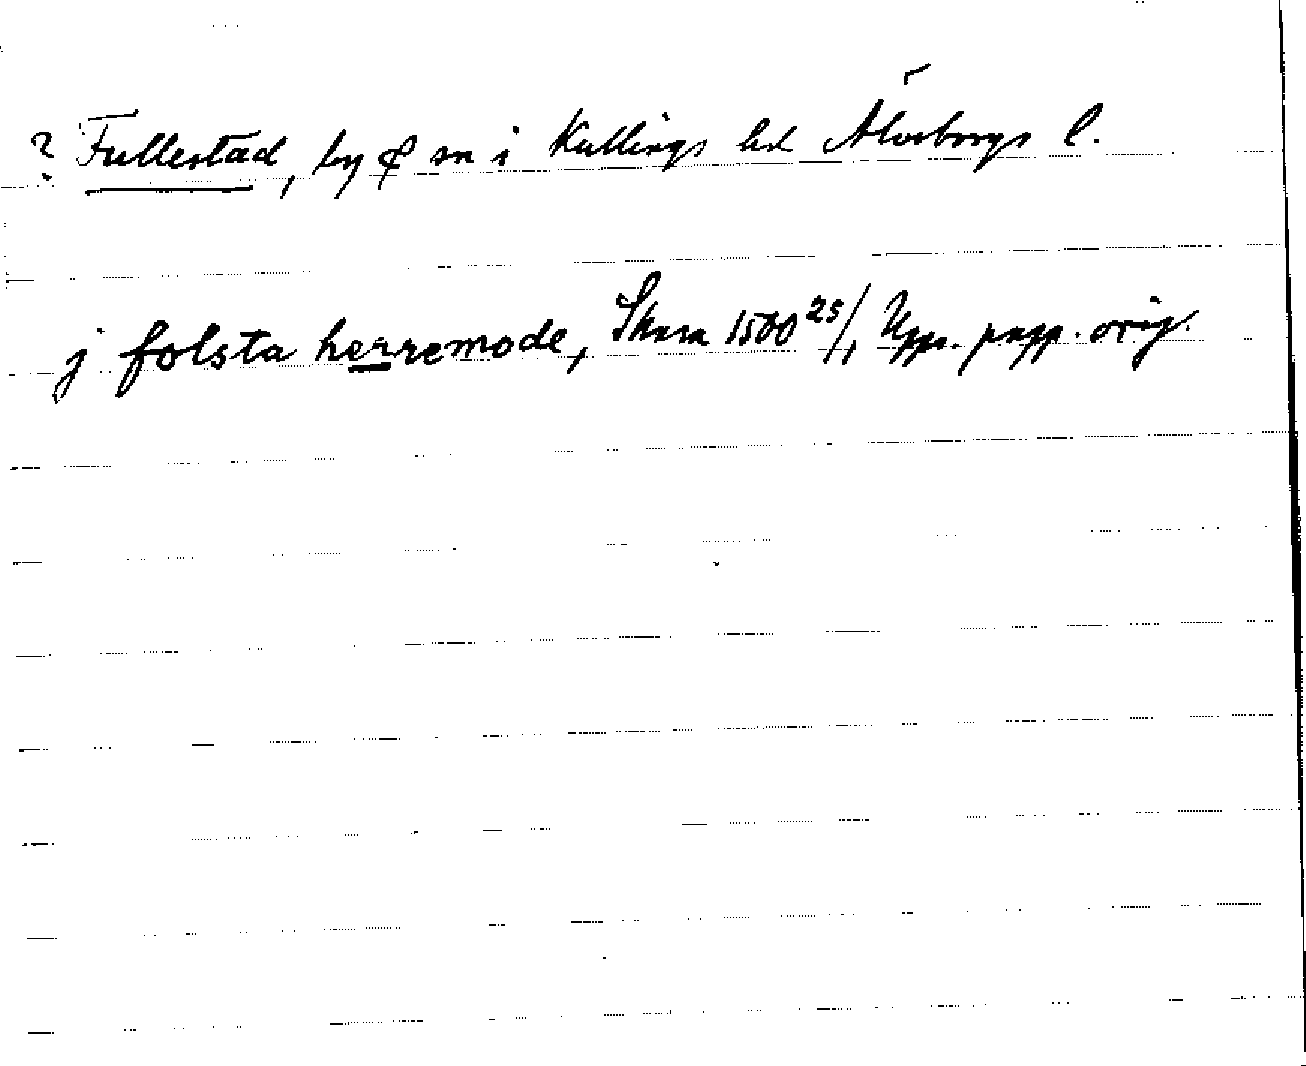 ? Fullestad, by & sn i Kullings hd Älvsborgs l.
j folsta herremode, Skara 1500 25/1 Upps. papp. orig.